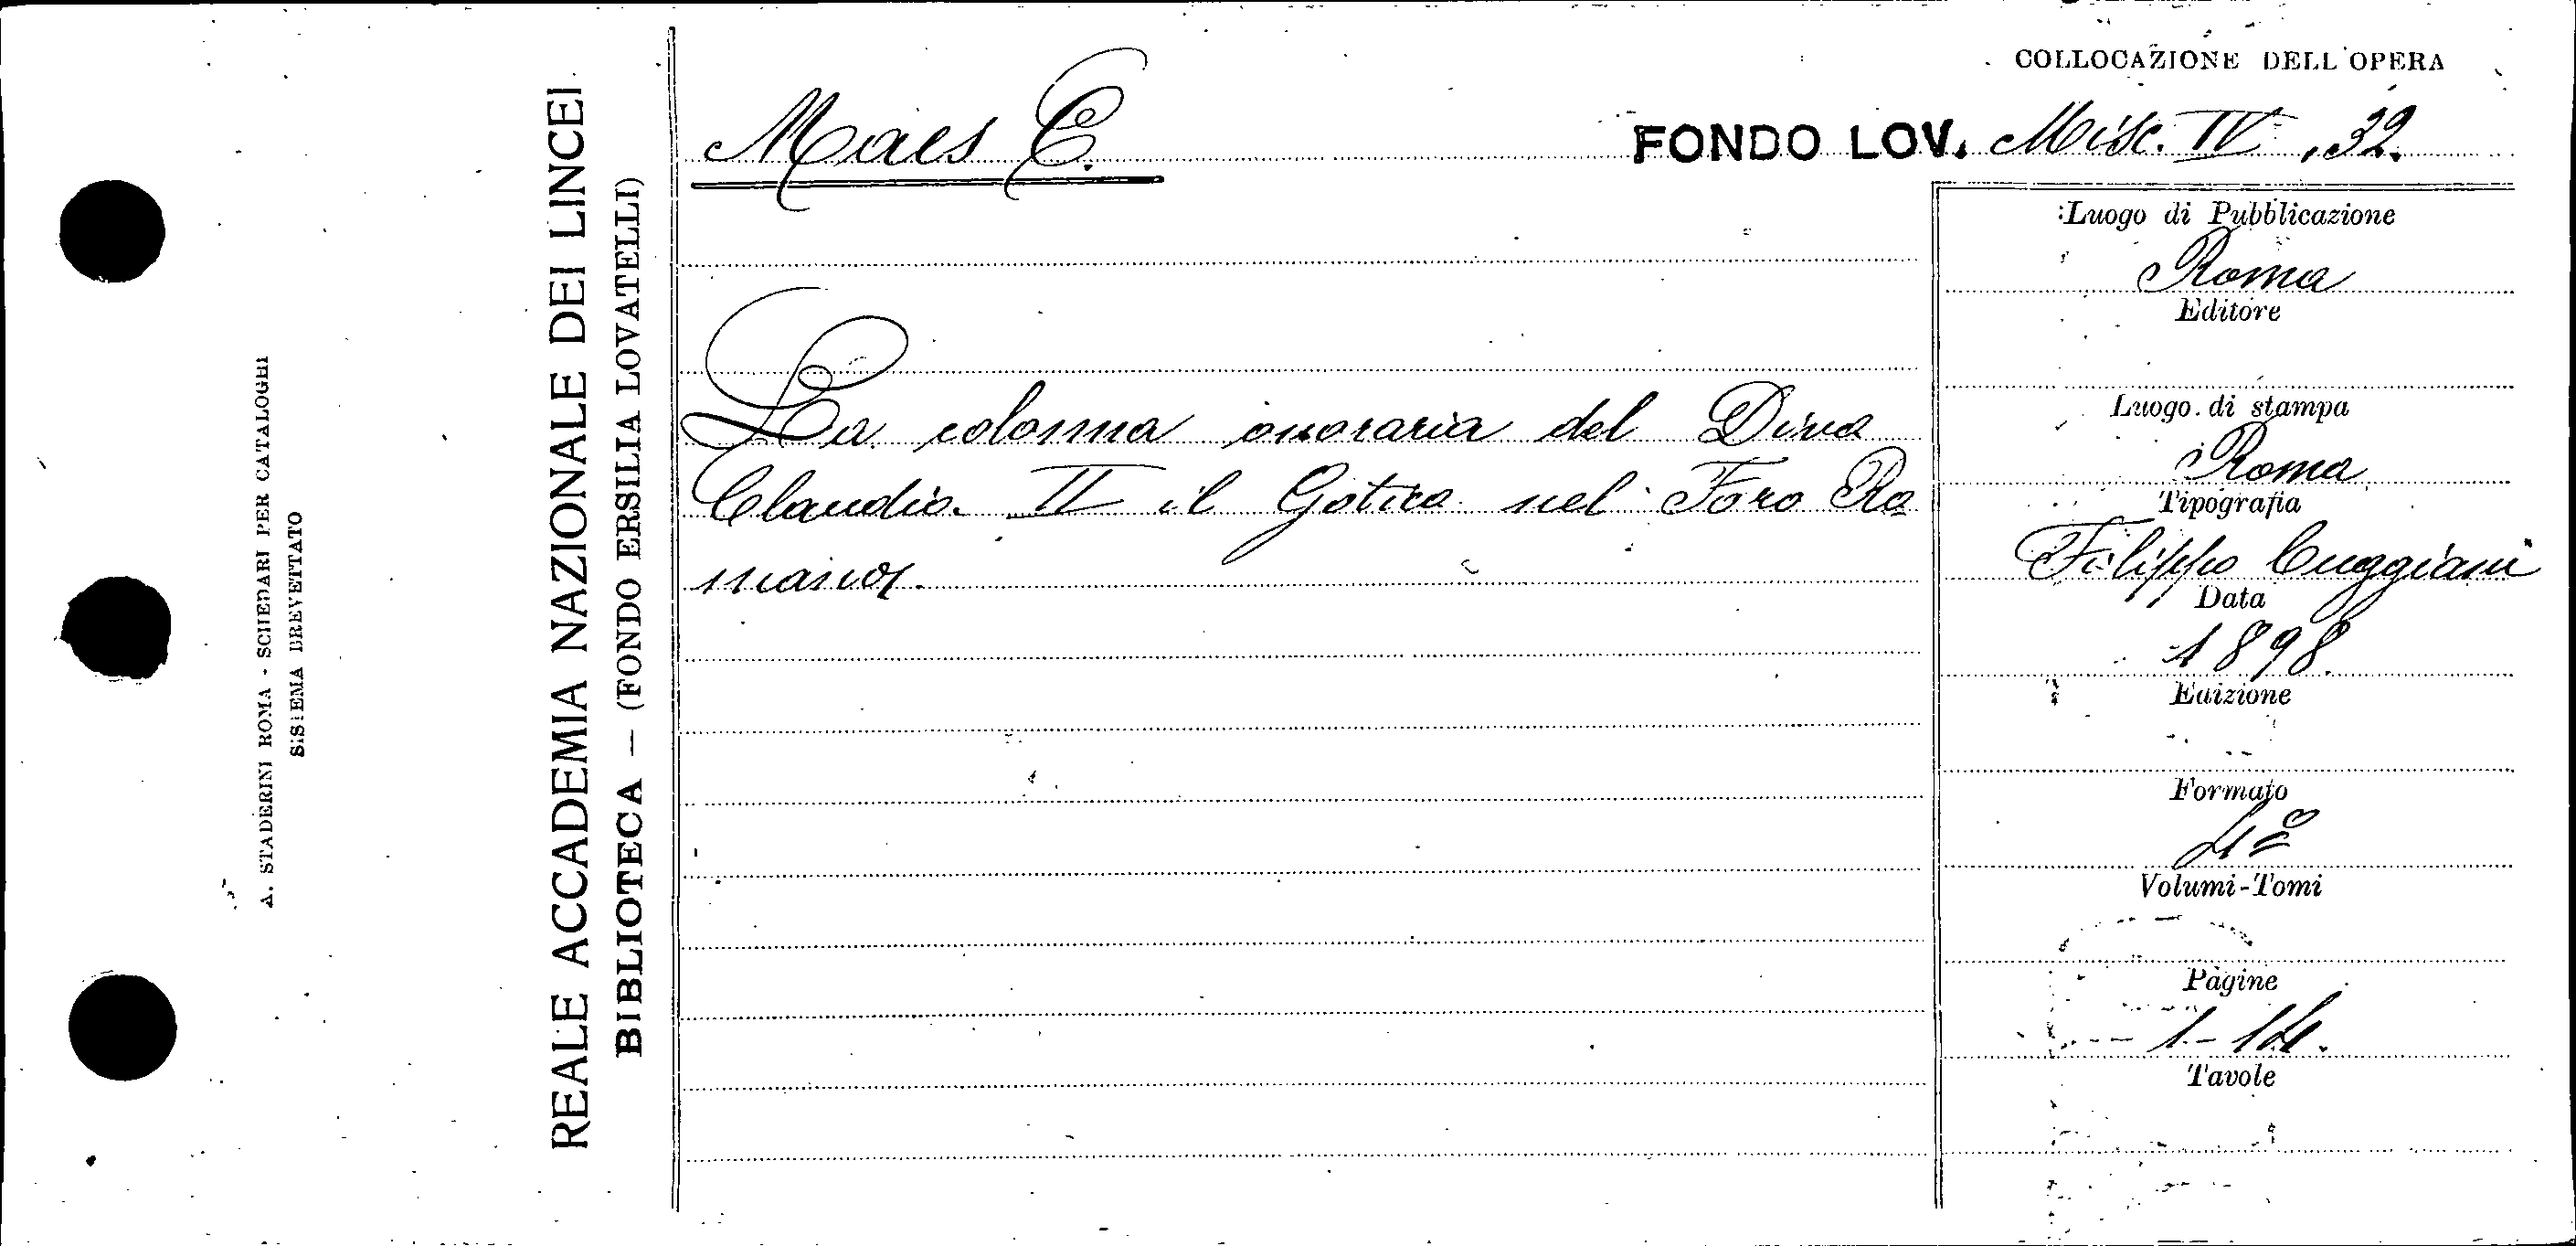 A. STADERINI ROMA - SCHEDARI PER CATALOGHI
SISTEMA BREVETTATO
REALE ACCADEMIA NAZIONALE DEI LINCEI
BIBLIOTECA — (FONDO ERSILIA LOVATELLI)
Maes C.
COLLOCAZIONE DELL'OPERA
FONDO LOV. Misc. IV, 32.
La colonna onoraria del Divo
Claudio II il Gotico nel Foro Ro
mano.
Luogo di Pubblicazione
Roma
Editore
Luogo di stampa
Roma
Tipografia
Filippo Cuggiani
Data
1898.
Edizione
Formato
4º
Volumi-Tomi
Pagine
1-14.
Tavole